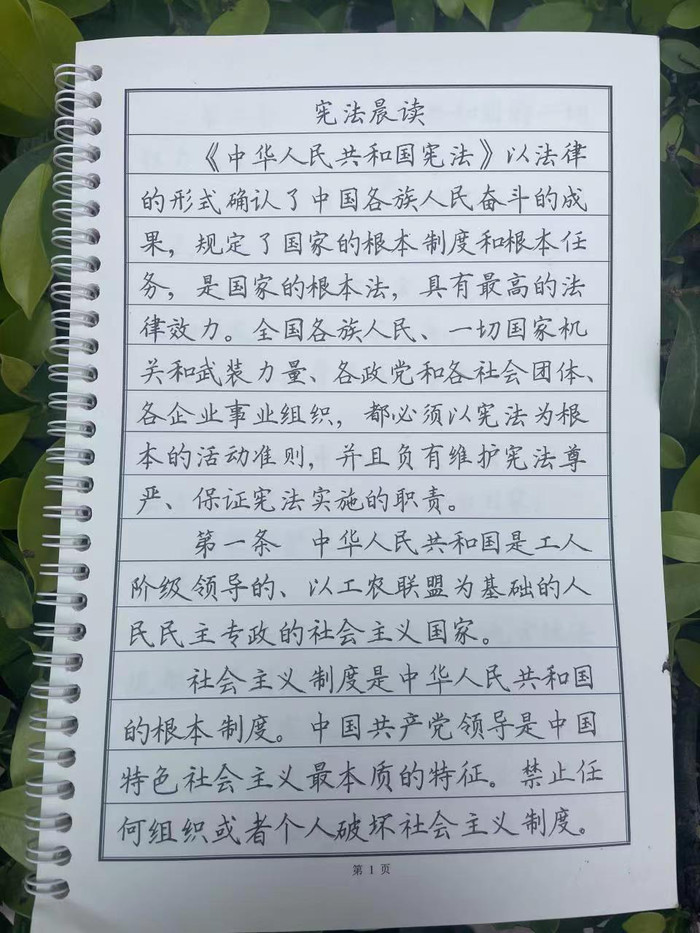 宪法晨读
《中华人民共和国宪法》以法律
的形式确认了中国各族人民奋斗的成
果，规定了国家的根本制度和根本任
务，是国家的根本法，具有最高的法
律效力。全国各族人民、一切国家机
关和武装力量、各政党和各社会团体、
各企业事业组织，都必须以宪法为根
本的活动准则，并且负有维护宪法尊
严、保证宪法实施的职责。
第一条 中华人民共和国是工人
阶级领导的、以工农联盟为基础的人
民民主专政的社会主义国家。
社会主义制度是中华人民共和国
的根本制度。中国共产党领导是中国
特色社会主义最本质的特征。禁止任
何组织或者个人破坏社会主义制度。
第 1 页